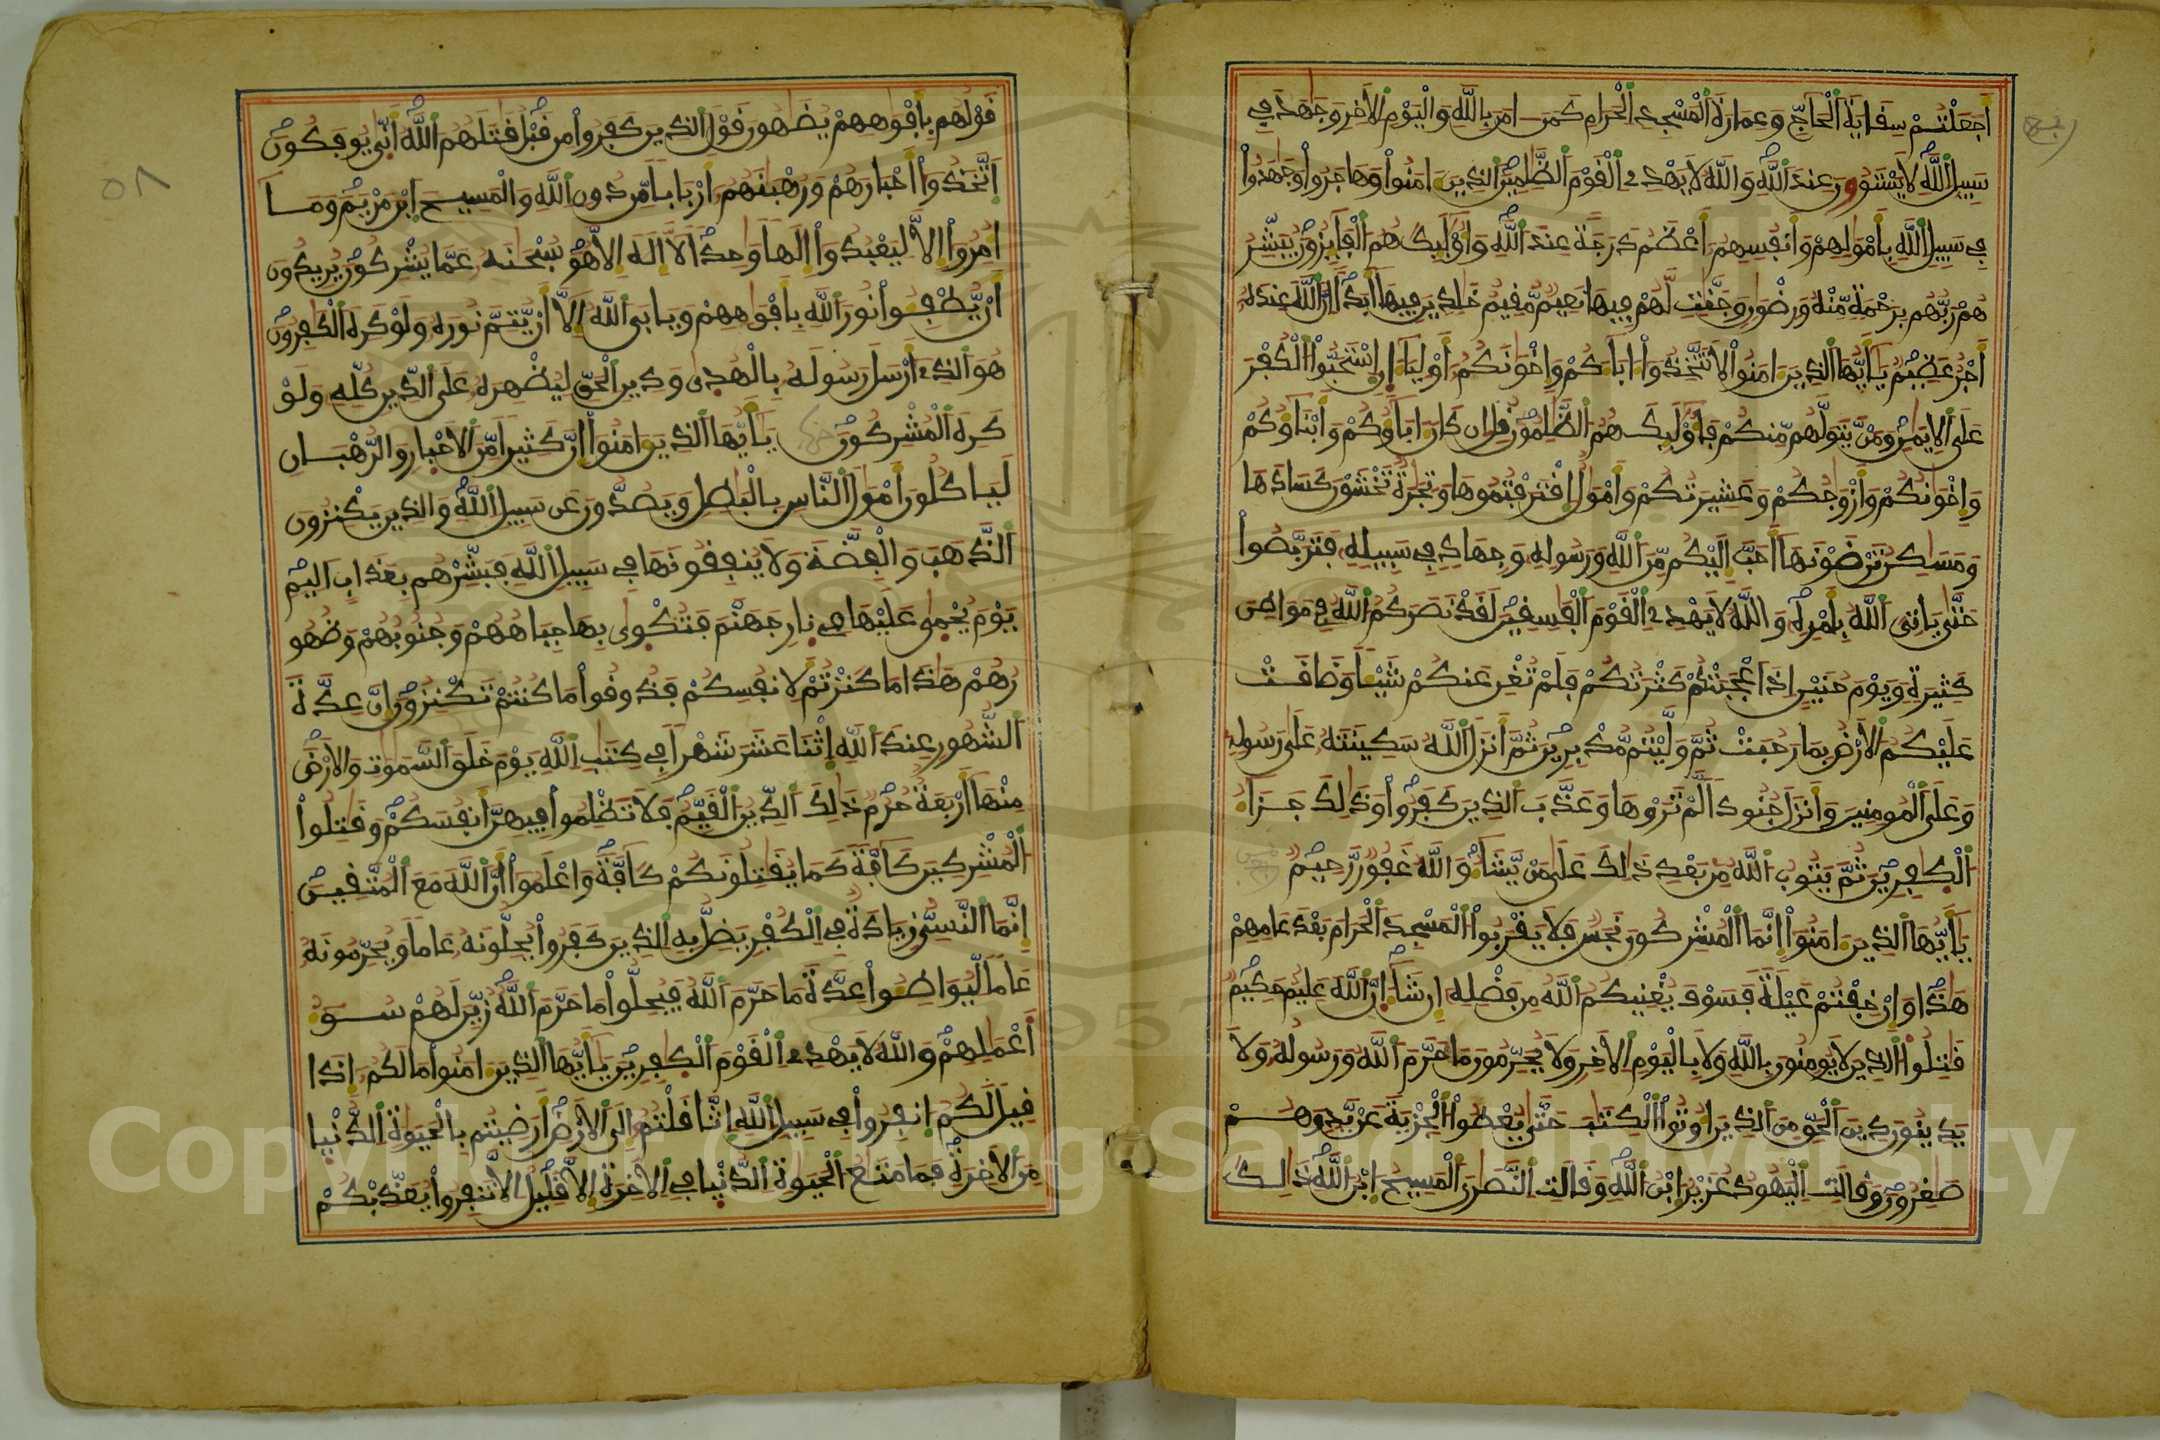 اَجَعَلْتُمْ سِقَايَةَ اَلْحَآجِّ وَعِمَارَةَ اَلْمَسْجِدِ اِلْحَرَامِ كَمَنَ ـ امَنَ بِاللَّهِ وَالْيَوْمِ اِلاَخِرِ وَجَٰهَدَ فِے
سَبِيلِ اِللَّهِ لَا يَسْتَوُۥنَ عِندَ اَللَّهِ وَاللَّهُ لَا يَهْدِے اِلْقَوْمَ اَلظَّٰلِمِينَ اَلذِينَ ءَامَنُواْ وَهَاجَرُواْ وَجَٰهَدُواْ
فِے سَبِيلِ اِللَّهِ بِأَمْوَٰلِهِمْ وَأَنفُسِهِمُۥ أَعْظَمُ دَرَجَةً عِندَ اَللَّهِ وَأُوْلَٰٓئِكَ هُمُ اَلْفَآئِزُونَ يُبَشِّرُ
هُمْ رَبُّهُم بِرَحْمَةٍ مِّنْهُ وَرِضْوَٰنٍ وَجَنَّٰتٍ لَّهُمْ فِيهَا نَعِيمٌ مُّقِيمٌ خَٰلِدِينَ فِيهَآ أَبَداً اِنَّ اَللَّهَ عِندَهُۥٓ
أَجْرٌ عَظِيمٌ يَٰٓأَيُّهَا اَلذِينَ ءَامَنُواْ لَا تَتَّخِذُوٓاْ ءَابَآءَكُمْ وَإِخْوَٰنَكُمُۥٓ أَوْلِيَآءَ اِنِ اِسْتَحَبُّواْ اَلْكُفْرَ
عَلَى اَلِايمَٰنِ وَمَنْ يَّتَوَلَّهُم مِّنكُمْ فَأُوْلَٰٓئِكَ هُمُ اَلظَّٰلِمُونَ قُلِ ان كَانَ ءَابَآؤُكُمْ وَأَبْنَآؤُكُمْ
وَإِخْوَٰنُكُمْ وَأَزْوَٰجُكُمْ وَعَشِيرَتُكُمْ وَأَمْوَٰلٌ اِقْتَرَفْتُمُوهَا وَتِجَٰرَةٌ تَخْشَوْنَ كَسَادَهَا
وَمَسَٰكِنُ تَرْضَوْنَهَآ أَحَبَّ إِلَيْكُم مِّنَ اَللَّهِ وَرَسُولِهِ وَجِهَادٍ فِے سَبِيلِهِ فَتَرَبَّصُواْ
حَتَّىٰ يَاتِىَ اَللَّهُ بِأَمْرِهِ وَاللَّهُ لَا يَهْدِے اِلْقَوْمَ اَلْفَٰسِقِينَ لَقَدْ نَصَرَكُمُ اَللَّهُ فِے مَوَاطِنَ
كَثِيرَةٍ وَيَوْمَ حُنَيْنٍ اِذَ اَعْجَبَتْكُمْ كَثْرَتُكُمْ فَلَمْ تُغْنِ عَنكُمْ شَيْـٔاً وَضَاقَتْ
عَلَيْكُمُ اَلَارْضُ بِمَا رَحُبَتْ ثُمَّ وَلَّيْتُم مُّدْبِرِينَ ثُمَّ أَنزَلَ اَللَّهُ سَكِينَتَهُ عَلَىٰ رَسُولِهِ
وَعَلَى اَلْمُومِنِينَ وَأَنزَلَ جُنُوداً لَّمْ تَرَوْهَا وَعَذَّبَ اَلذِينَ كَفَرُواْ وَذَٰلِكَ جَزَآءُ
اُلْكَٰفِرِينَ ثُمَّ يَتُوبُ اَللَّهُ مِنۢ بَعْدِ ذَٰلِكَ عَلَىٰ مَنْ يَّشَآءُ وَاللَّهُ غَفُورٌ رَّحِيمٌ
يَٰٓأَيُّهَا اَلذِينَ ءَامَنُوٓاْ إِنَّمَا اَلْمُشْرِكُونَ نَجَسٌ فَلَا يَقْرَبُواْ اَلْمَسْجِدَ اَلْحَرَامَ بَعْدَ عَامِهِمْ
هَٰذَا وَإِنْ خِفْتُمْ عَيْلَةً فَسَوْفَ يُغْنِيكُمُ اَللَّهُ مِن فَضْلِهِ إِن شَآءَ اِنَّ اَللَّهَ عَلِيمٌ حَكِيمٌ
قَٰتِلُواْ اَلذِينَ لَا يُومِنُونَ بِاللَّهِ وَلَا بِالْيَوْمِ اِلَاخِرِ وَلَا يُحَرِّمُونَ مَا حَرَّمَ اَللَّهُ وَرَسُولُهُ وَلَا
يَدِينُونَ دِينَ اَلْحَقِّ مِنَ اَلذِينَ أُوتُواْ اُلْكِتَٰبَ حَتَّىٰ يُعْطُواْ اُلْجِزْيَةَ عَنْ يَّدٍ وَهُمْ
صَٰغِرُونَ وَقَالَتِ اِلْيَهُودُ عُزَيْرُ اِبْنُ اُللَّهِ وَقَالَتِ اِلنَّصَٰرَى اَلْمَسِيحُ اِبْنُ اُللَّهِ ذَٰلِكَ
قَوْلُهُم بِأَفْوَٰهِهِمْ يُضَٰهُونَ قَوْلَ اَلذِينَ كَفَرُواْ مِن قَبْلُ قَٰتَلَهُمُ اُللَّهُ أَنَّىٰ يُوفَكُونَ
اَتَّخَذُوٓاْ أَحْبَارَهُمْ وَرُهْبَٰنَهُمُۥٓ أَرْبَاباً مِّن دُونِ اِللَّهِ وَالْمَسِيحَ اَبْنَ مَرْيَمَ وَمَآ
أُمِرُوٓاْ إِلَّا لِيَعْبُدُوٓاْ إِلَٰهاً وَٰحِداً لَآ إِلَٰهَ إِلَّا هُوَ سُبْحَٰنَهُ عَمَّا يُشْرِكُونَ يُرِيدُونَ
أَنْ يُّطْفِـُٔواْ نُورَ اَللَّهِ بِأَفْوَٰهِهِمْ وَيَابَى اَللَّهُ إِلَّآ أَنْ يُّتِمَّ نُورَهُ وَلَوْ كَرِهَ اَلْكَٰفِرُونَ
هُوَ اَلذِے أَرْسَلَ رَسُولَهُ بِالْهُدَىٰ وَدِينِ اِلْحَقِّ لِيُظْهِرَهُ عَلَى اَلدِّينِ كُلِّهِ وَلَوْ
كَرِهَ اَلْمُشْرِكُونَ يَٰٓأَيُّهَا اَلذِينَ ءَامَنُوٓاْ إِنَّ كَثِيراً مِّنَ اَلَاحْبَارِ وَالرُّهْبَانِ
لَيَاكُلُونَ أَمْوَٰلَ اَلنَّاسِ بِالْبَٰطِلِ وَيَصُدُّونَ عَن سَبِيلِ اِللَّهِ وَالذِينَ يَكْنِزُونَ
اَلذَّهَبَ وَالْفِضَّةَ وَلَا يُنفِقُونَهَا فِے سَبِيلِ اِللَّهِ فَبَشِّرْهُم بِعَذَابٍ اَلِيمٍ
يَوْمَ يُحْمَىٰ عَلَيْهَا فِے نَارِ جَهَنَّمَ فَتُكْوَىٰ بِهَا جِبَاهُهُمْ وَجُنُوبُهُمْ وَظُهُو
رُهُمْ هَٰذَا مَا كَنَزْتُمْ لِأَنفُسِكُمْ فَذُوقُواْ مَا كُنتُمْ تَكْنِزُونَ إِنَّ عِدَّةَ
اَلشُّهُورِ عِندَ اَللَّهِ اِثْنَا عَشَرَ شَهْراً فِے كِتَٰبِ اِللَّهِ يَوْمَ خَلَقَ اَلسَّمَٰوَٰتِ وَالَارْضَ
مِنْهَآ أَرْبَعَةٌ حُرُمٌ ذَٰلِكَ اَلدِّينُ اُلْقَيِّمُ فَلَا تَظْلِمُواْ فِيهِنَّ أَنفُسَكُمْ وَقَٰتِلُواْ
اُلْمُشْرِكِينَ كَآفَّةً كَمَا يُقَٰتِلُونَكُمْ كَآفَّةً وَاعْلَمُوٓاْ أَنَّ اَللَّهَ مَعَ اَلْمُتَّقِينَ
إِنَّمَا اَلنَّسِيُّ زِيَادَةٌ فِے اِلْكُفْرِ يَضِلُّ بِهِ اِلذِينَ كَفَرُواْ يُحِلُّونَهُ عَاماً وَيُحَرِّمُونَهُ
عَاماً لِّيُوَاطِـُٔواْ عِدَّةَ مَا حَرَّمَ اَللَّهُ فَيُحِلُّواْ مَا حَرَّمَ اَللَّهُ زُيِّنَ لَهُمْ سُوٓءُ
أَعْمَٰلِهِمْ وَاللَّهُ لَا يَهْدِے اِلْقَوْمَ اَلْكَٰفِرِينَ يَٰٓأَيُّهَا اَلذِينَ ءَامَنُواْ مَا لَكُمُۥٓ إِذَا
قِيلَ لَكُمُ اُنفِرُواْ فِے سَبِيلِ اِللَّهِ اِثَّاقَلْتُمُۥٓ إِلَى اَلَارْضِ أَرَضِيتُم بِالْحَيَوٰةِ اِلدُّنْيا
مِنَ اَلَاخِرَةِ فَمَا مَتَٰعُ اُلْحَيَوٰةِ اِلدُّنْيا فِے اِلَاخِرَةِ إِلَّا قَلِيلٌ اِلَّا تَنفِرُواْ يُعَذِّبْكُمْ
٥٨